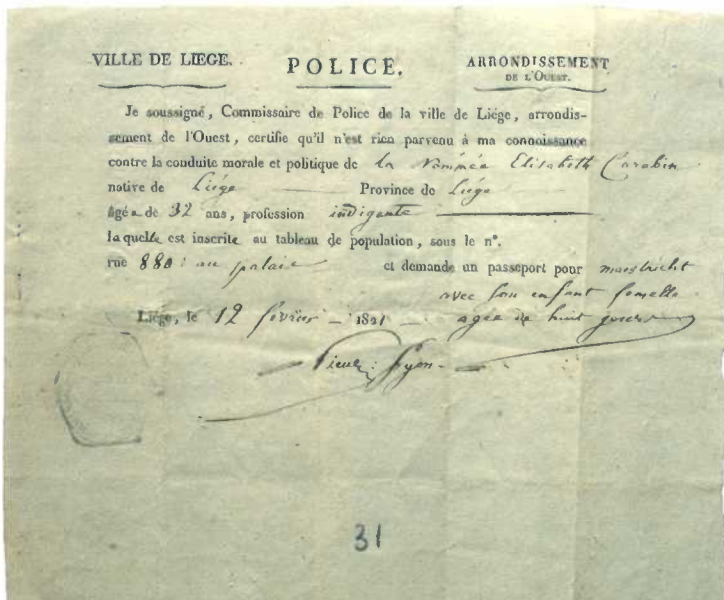 VILLE DE LIEGE. POLICE. ARRONDISSEMENT
DE L'OUEST.
Je soussigné, Commissaire de Police de la ville de Liége, arrondis-
sement de l'Ouest, certifie qu'il n'est rien parvenu à ma connoissance
contre la conduite morale et politique de la Nommée Elisabeth Carabin
native de Liége Province de Liege
âgée de 32 ans, profession indigente
laquelle est inscrite au tableau de population, sous le n°.
rue 880: au palais et demande un passeport pour maestricht
avec son enfant femelle
Liége, le 12 fevrier 1821 agée de huit jours
31